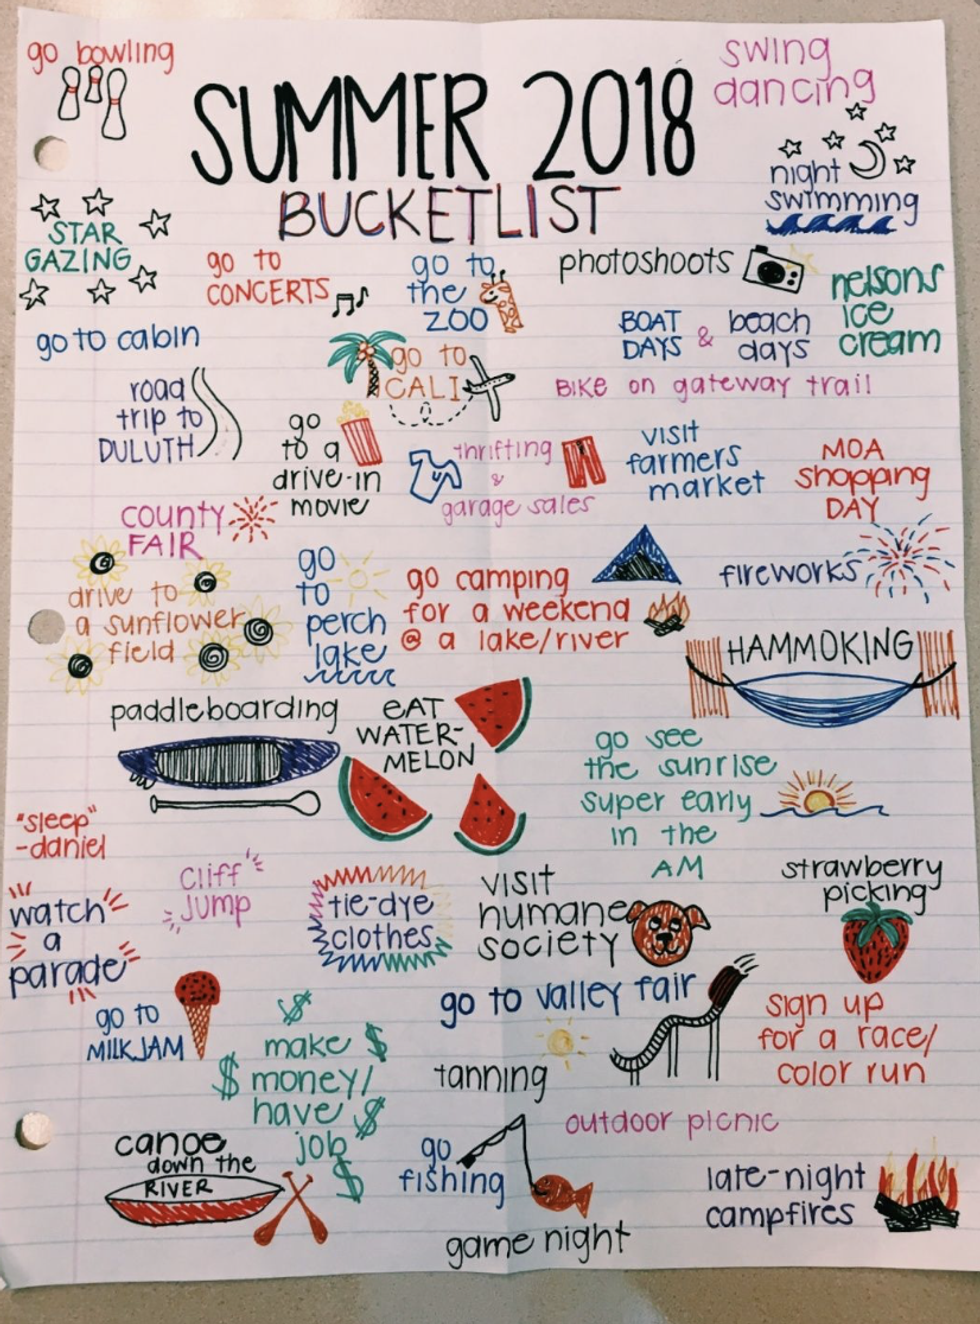 go bowling
SUMMER 2018
BUCKETLIST
swing
dancing
night
swimming
STAR
GAZING
go to
CONCERTS
go to
the
ZOO
photoshoots
nelsons
ice
cream
go to cabin
BOAT
DAYS
&
beach
days
go to
CALI
BIKE on gateway trail
road
trip to
DULUTH
go
to a
drive-in
movie
thrifting
&
garage sales
visit
farmers
market
MOA
shopping
DAY
county
FAIR
drive to
a sunflower
field
go
to
perch
lake
go camping
for a weekend
@ a lake/river
fireworks
HAMMOKING
paddleboarding
eAT
WATER-
MELON
go see
the sunrise
super early
in the
AM
"sleep"
-daniel
watch
a
parade
cliff
jump
tie-dye
clothes
visit
humane
society
strawberry
picking
go to
MILKJAM
$
make $
$ money/
have $
job
$
go to valley fair
tanning
sign up
for a race/
color run
outdoor picnic
canoe
down the
RIVER
go
fishing
game night
late-night
campfires